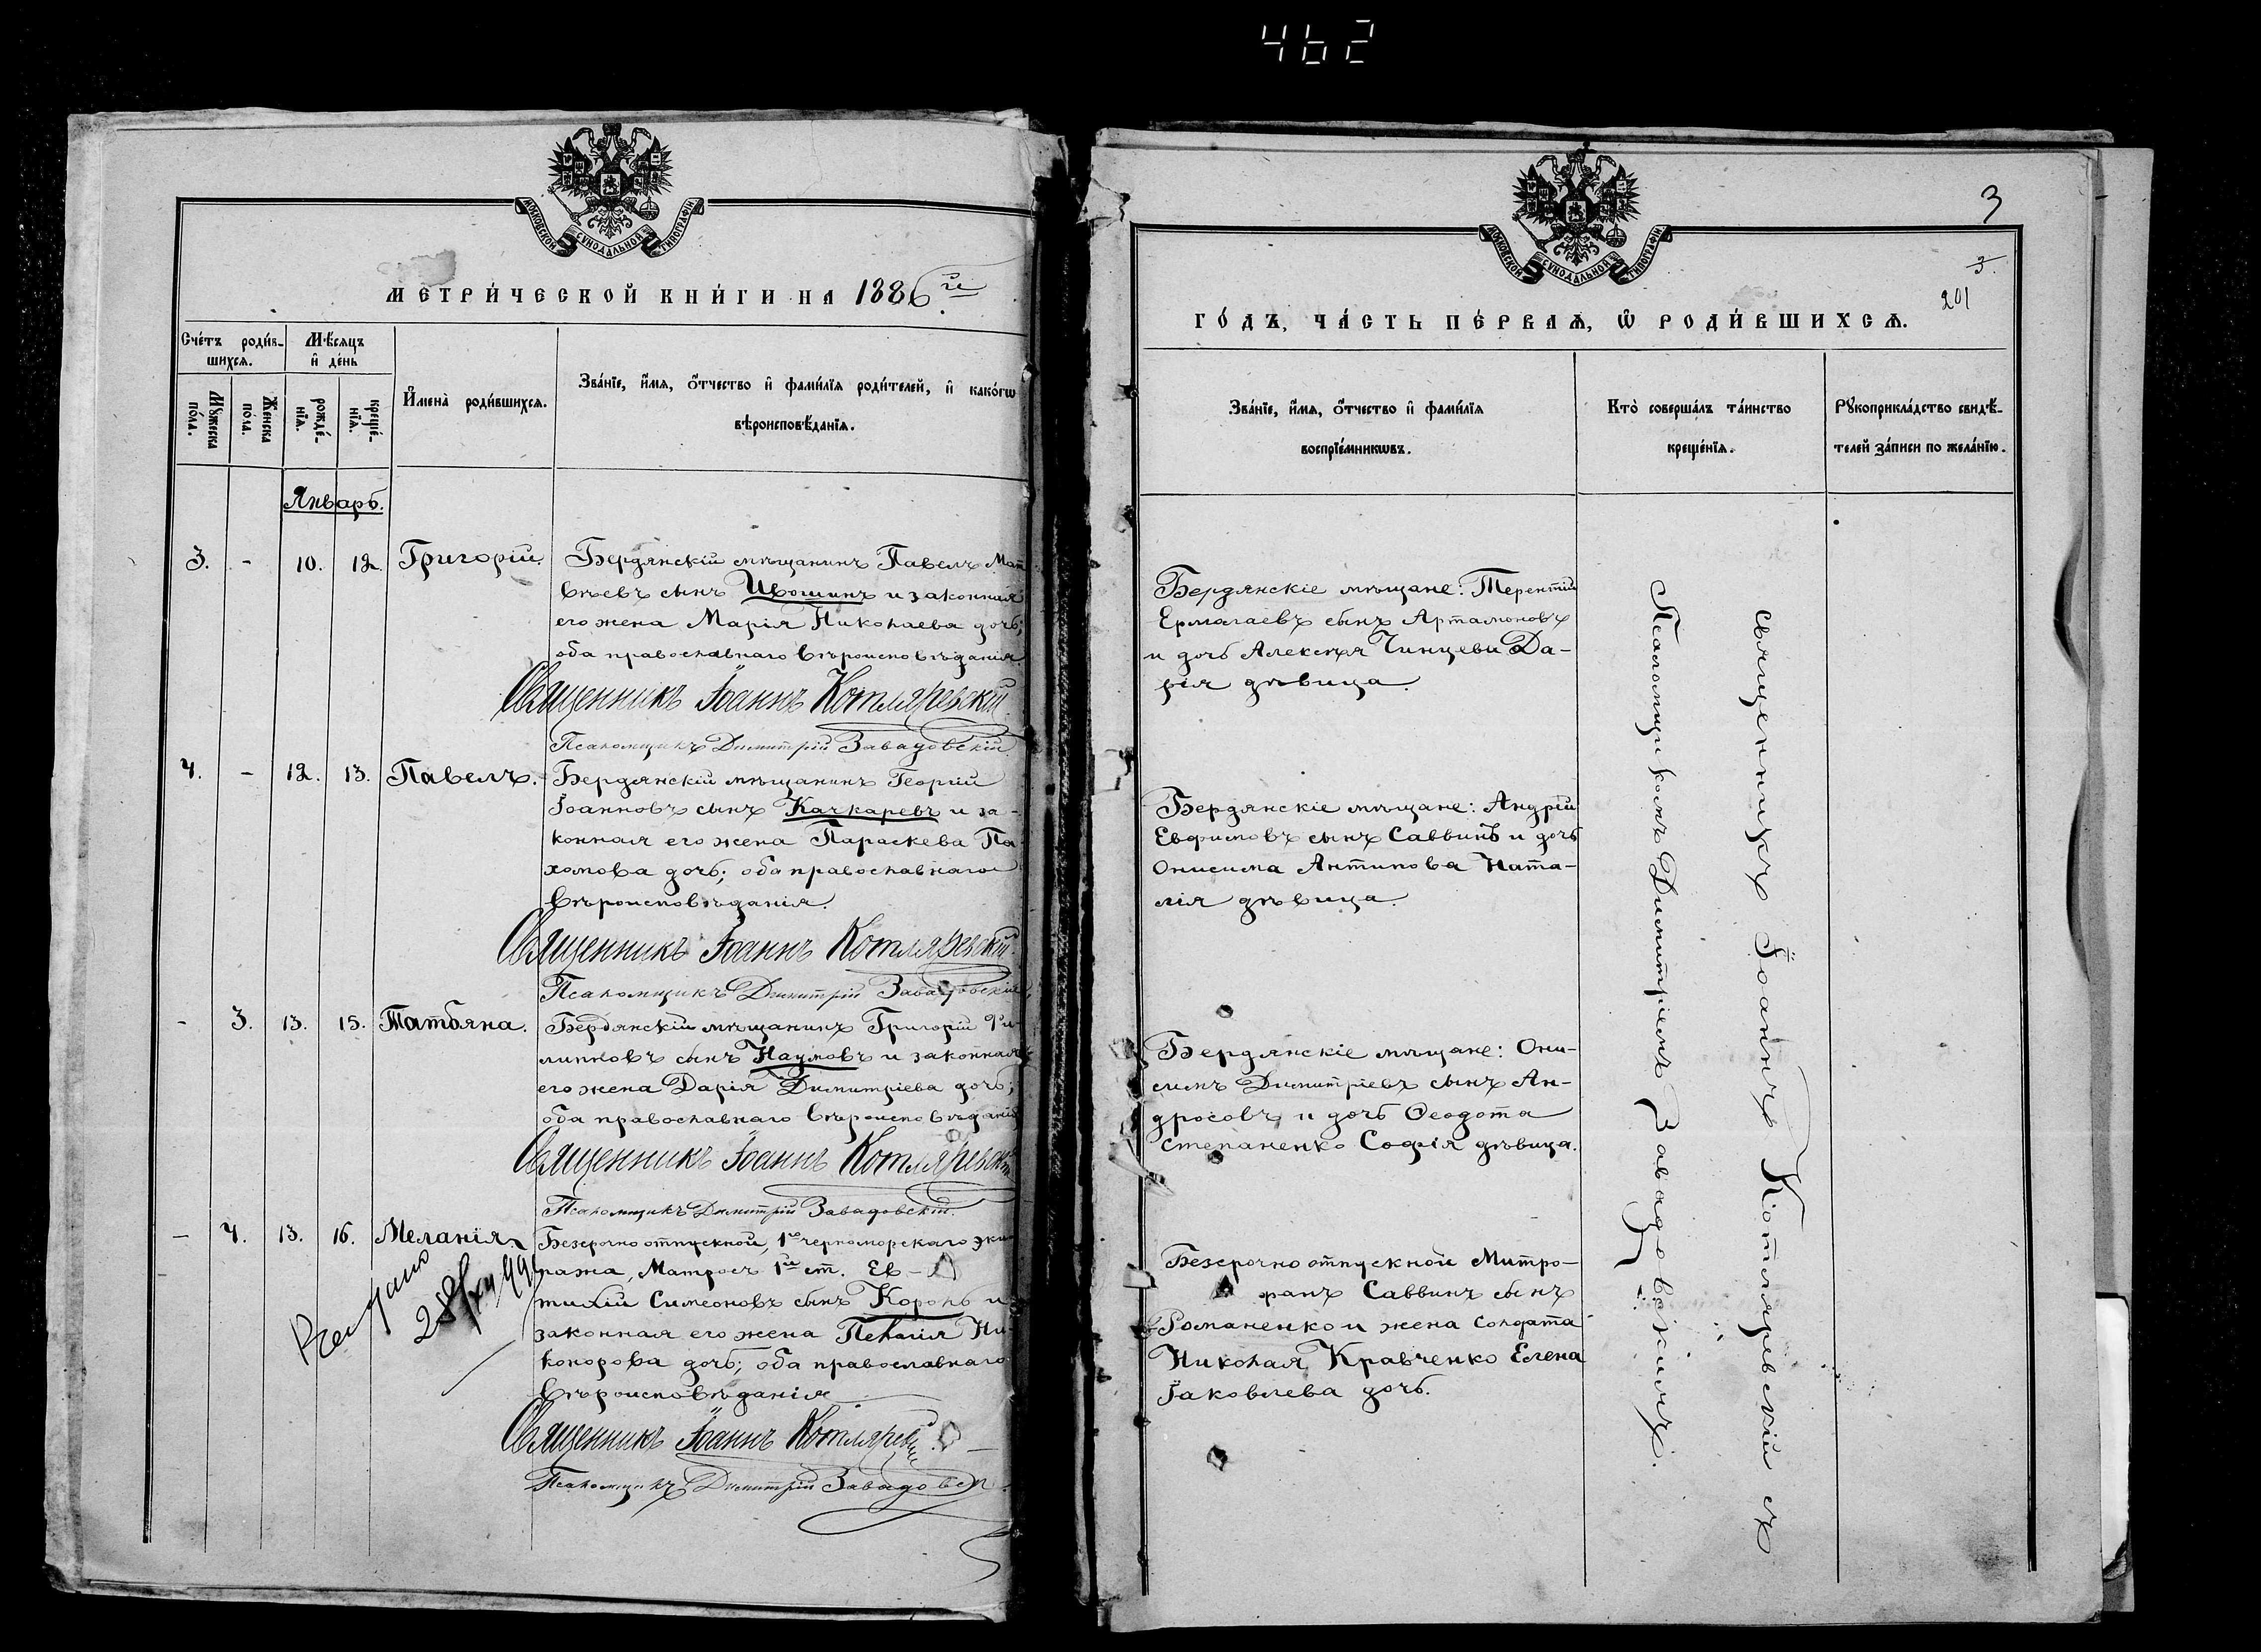 462
МОСКОВСКОЙ СУНОДАЛЬНОЙ ТИПОГРАФІИ
МЕТРИ́ЧЕСКОЙ КНИ́ГИ НА 1886 й
Сче́тъ роди́в-
шихся.
Мѣ́сяцъ
и҆ де́нь
Мꙋ́жеска
по́ла.
Же́нска
по́ла.
рожде́-
нїѧ.
креще́-
нїѧ.
И҆мена̀ роди́вшихся.
Зва́нїе, и҆́мя, ѻ҆́тчество и҆ фами́лїя роди́телей, и҆ како́гѡ
вѣроисповѣ́данїя.
Январь.
3. - 10. 12. Григорій. Бердянскій мѣщанинъ Павелъ Мат
вѣевъ сынъ Ивошинъ и законная
его жена Марія Николаева дочь;
оба православнаго вѣроисповѣданія.
Священникъ Іоаннъ Котляревскій
Псаломщикъ Димитрій Завадовскій.
4. - 12. 13. Павелъ. Бердянскій мѣщанинъ Георгій
Іоанновъ сынъ Качкаревъ и за-
конная его жена Параскева Па
хомова дочь; оба православнаго
вѣроисповѣданія.
Священникъ Іоаннъ Котляревскій.
Псаломщикъ Димитрій Завадовскій
- 3. 13. 15. Татьяна. Бердянскій мѣщанинъ Григорій Фи-
липповъ сынъ Наумовъ и законная
его жена Дарія Димитріева дочь;
оба православнаго вѣроисповѣданія
Священникъ Іоаннъ Котляревскій
Псаломщикъ Димитрій Завадовскій.
- 4. 13. 16. Меланія Безсрочно отпускной, 1го черноморскаго эки
пажа, Матросъ 1й ст. Ев-
тихій Симеоновъ сынъ Король и
законная его жена Пелагія Ни-
конорова дочь; оба православнаго
вѣроисповѣданія
Священникъ Іоаннъ Котляревскій
Псаломщикъ Димитрій Завадовск
3
МОСКОВСКОЙ СУНОДАЛЬНОЙ ТИПОГРАФІИ
3.
201
ГО́ДЪ, ЧА́СТЬ ПЕ́РВАѦ, Ѡ҆ РОДИ́ВШИХСѦ.
Зва́нїе, и҆́мя, ѻ҆́тчество и҆ фами́лїя
воспрїе́мникѡвъ.
Кто̀ соверша́лъ та́инство
креще́нїя.
Рꙋкоприкла́дство свидѣ́-
телей за́писи по жела́нїю.
Бердянскіе мѣщане: Терентій
Ермолаевъ сынъ Артамоновъ
и дочь Алексѣя Чинцеви Да-
рія дѣвица.
Бердянскіе мѣщане: Андрій
Евфимовъ сынъ Саввинъ и дочь
Онисима Антипова Ната-
лія дѣвица.
Бердянскіе мѣщане: Они-
симъ Димитріевъ сынъ Ан-
дросовъ и дочь Ѳеодота
Степаненко Софія дѣвица.
Безсрочно отпускной Митро-
фанъ Саввинъ сынъ
Романенко и жена солдата
Николая Кравченко Елена
Іаковлева дочь.
Священникъ Іоаннъ Котляревскій съ
Псаломщикомъ Димитріемъ Завадовскимъ.